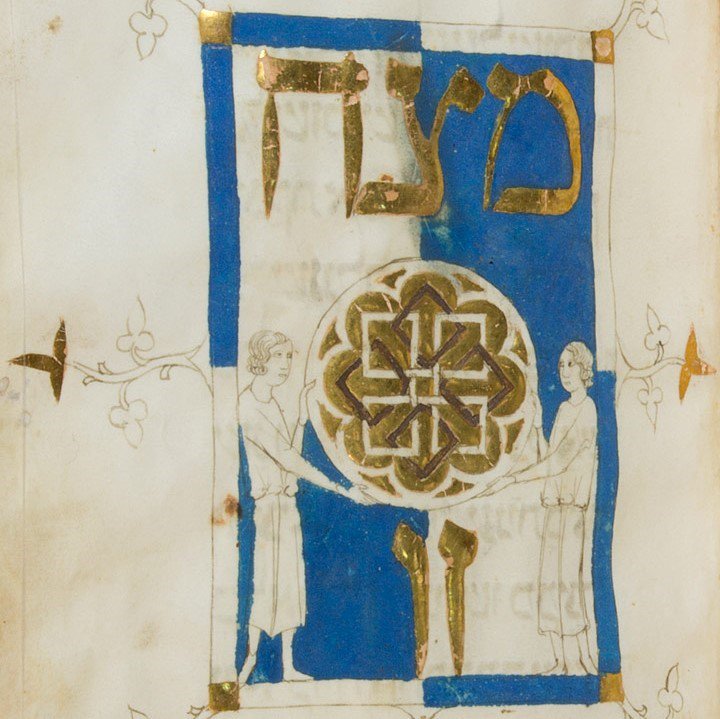 מצה
זו